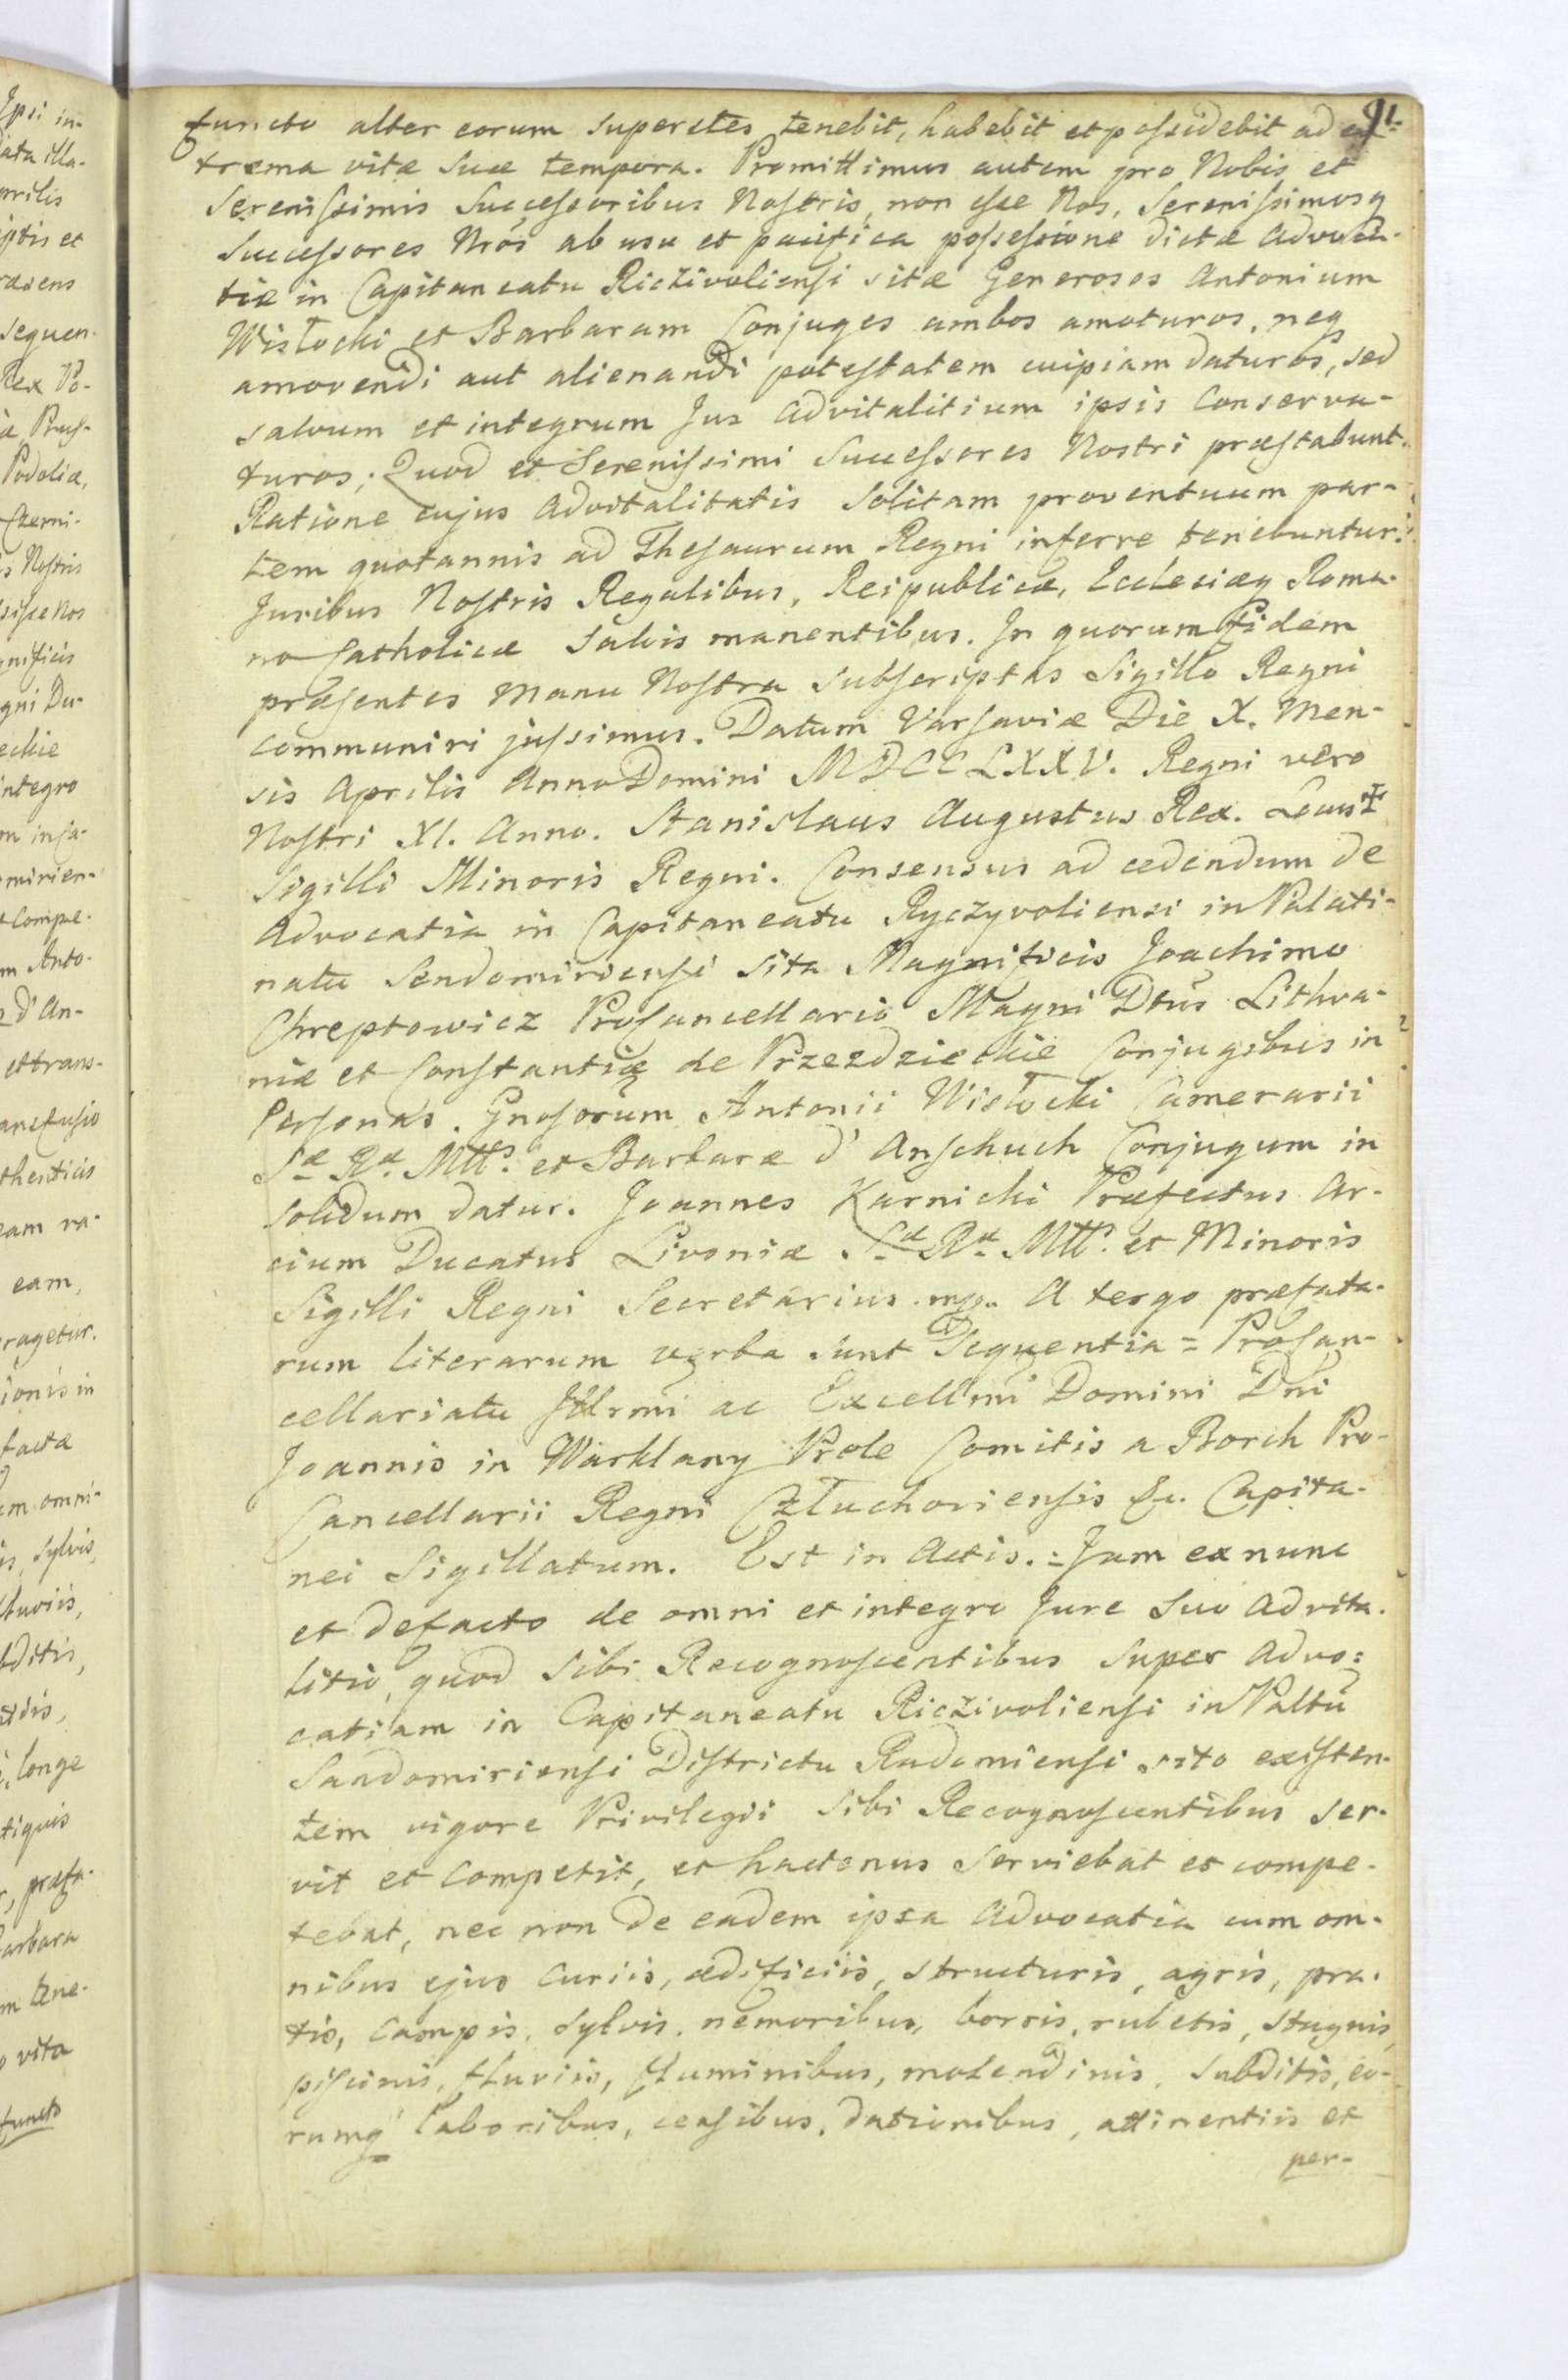 91.
functo alter eorum superstes tenebit, habebit et possidebit ad ex-
trema vitæ suæ tempora. Promittimus autem pro Nobis et
Serenissimis Successoribus Nostris, non esse Nos, Serenissimosq
Successores Nrós ab usu et pacifica possessione dictæ Advoca-
tiæ in Capitaneatu Riczivoliensi sitæ Generosos Antonium
Wisłocki et Barbaram Conjuges ambos amoturos, neq
amovendi aut alienandi potestatem cuipiam daturos, sed
salvum et integrum Jus Advitalitium ipsis Conserva-
turos; Quod et Serenissimi Successores Nostri præstabunt.
Ratione cujus Advitalitatis solitam proventuum par-
tem quotannis ad Thesaurum Regni inferre tenebuntur.
Juribus Nostris Regalibus, Reipublicæ, Ecclesiæq Roma-
no Catholicæ salvis manentibus. In quorum fidem
præsentes manu Nostra subscriptas Sigillo Regni
communiri jussimus. Datum Varsaviæ Die X. Men-
sis Aprilis Anno Domini MDCCLXXV. Regni vero
Nostri XI. Anno. Stanislaus Augustus Rex. Locus
Sigilli Minoris Regni. Consensus ad cedendum de
Advocatia in Capitaneatu Ryczyvoliensi in Palati-
natu Sendomiriensi sita Magnificis Joachimo
Chreptowicz Procancellario Magni Dtûs Lithva-
niæ et Constantiæ de Przezdzieckie Conjugibus in
Personas. Gnosorum Antonii Wisłocki Camerarii
Sæ Ræ Mtts. et Barbaræ d' Anschuch Conjugum in
solidum datur. Joannes Karnicki Præfectus Ar-
cium Ducatus Livoniæ Sæ Ræ Mtts. et Minoris
Sigilli Regni Secretarius mp. A tergo præfata-
rum literarum verba sunt Sequentia = Procan-
cellariatu Illrmi ac Excellmi Domini Dni
Joannis in Warklany Prele Comitis a Borch Pro-
Cancellarii Regni Człuchoviensis &c. Capita-
nei Sigillatum. Est in Actis. = Jam ex nunc
et defacto de omni et integro Jure Suo Advita-
litio, quod sibi Recognoscentibus super Advo=
catiam in Capitaneatu Riczivoliensi in Paltu
Sandomiriensi Districtu Radomiensi sito existen-
tem vigore Privilegii sibi Recognoscentibus ser-
vit et Competit, et hactenus serviebat et compe-
tebat, nec non de eadem ipsa Advocatia cum om-
nibus ejus Curiis, ædificiis, structuris, agris, pra-
tis, Campis, sylvis, nemoribus, borris, rubetis, stagnis,
piscinis, fluviis, fluminibus, molendinis, subditis, eo-
rumq laboribus, censibus, dationibus, attinentiis et
per-